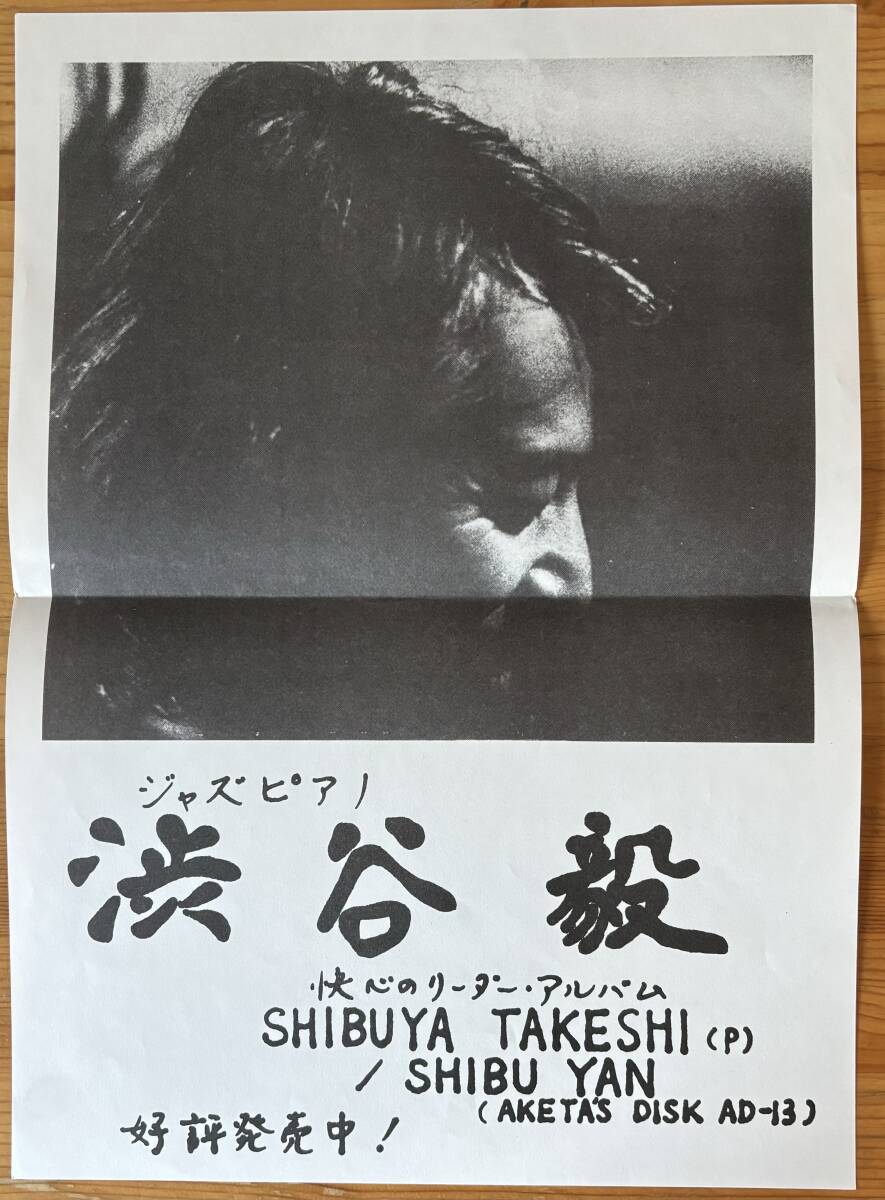 ジャズピアノ
渋谷 毅
快心のリーダー・アルバム
SHIBUYA TAKESHI (P)
/ SHIBU YAN
(AKETA'S DISK AD-13)
好評発売中!